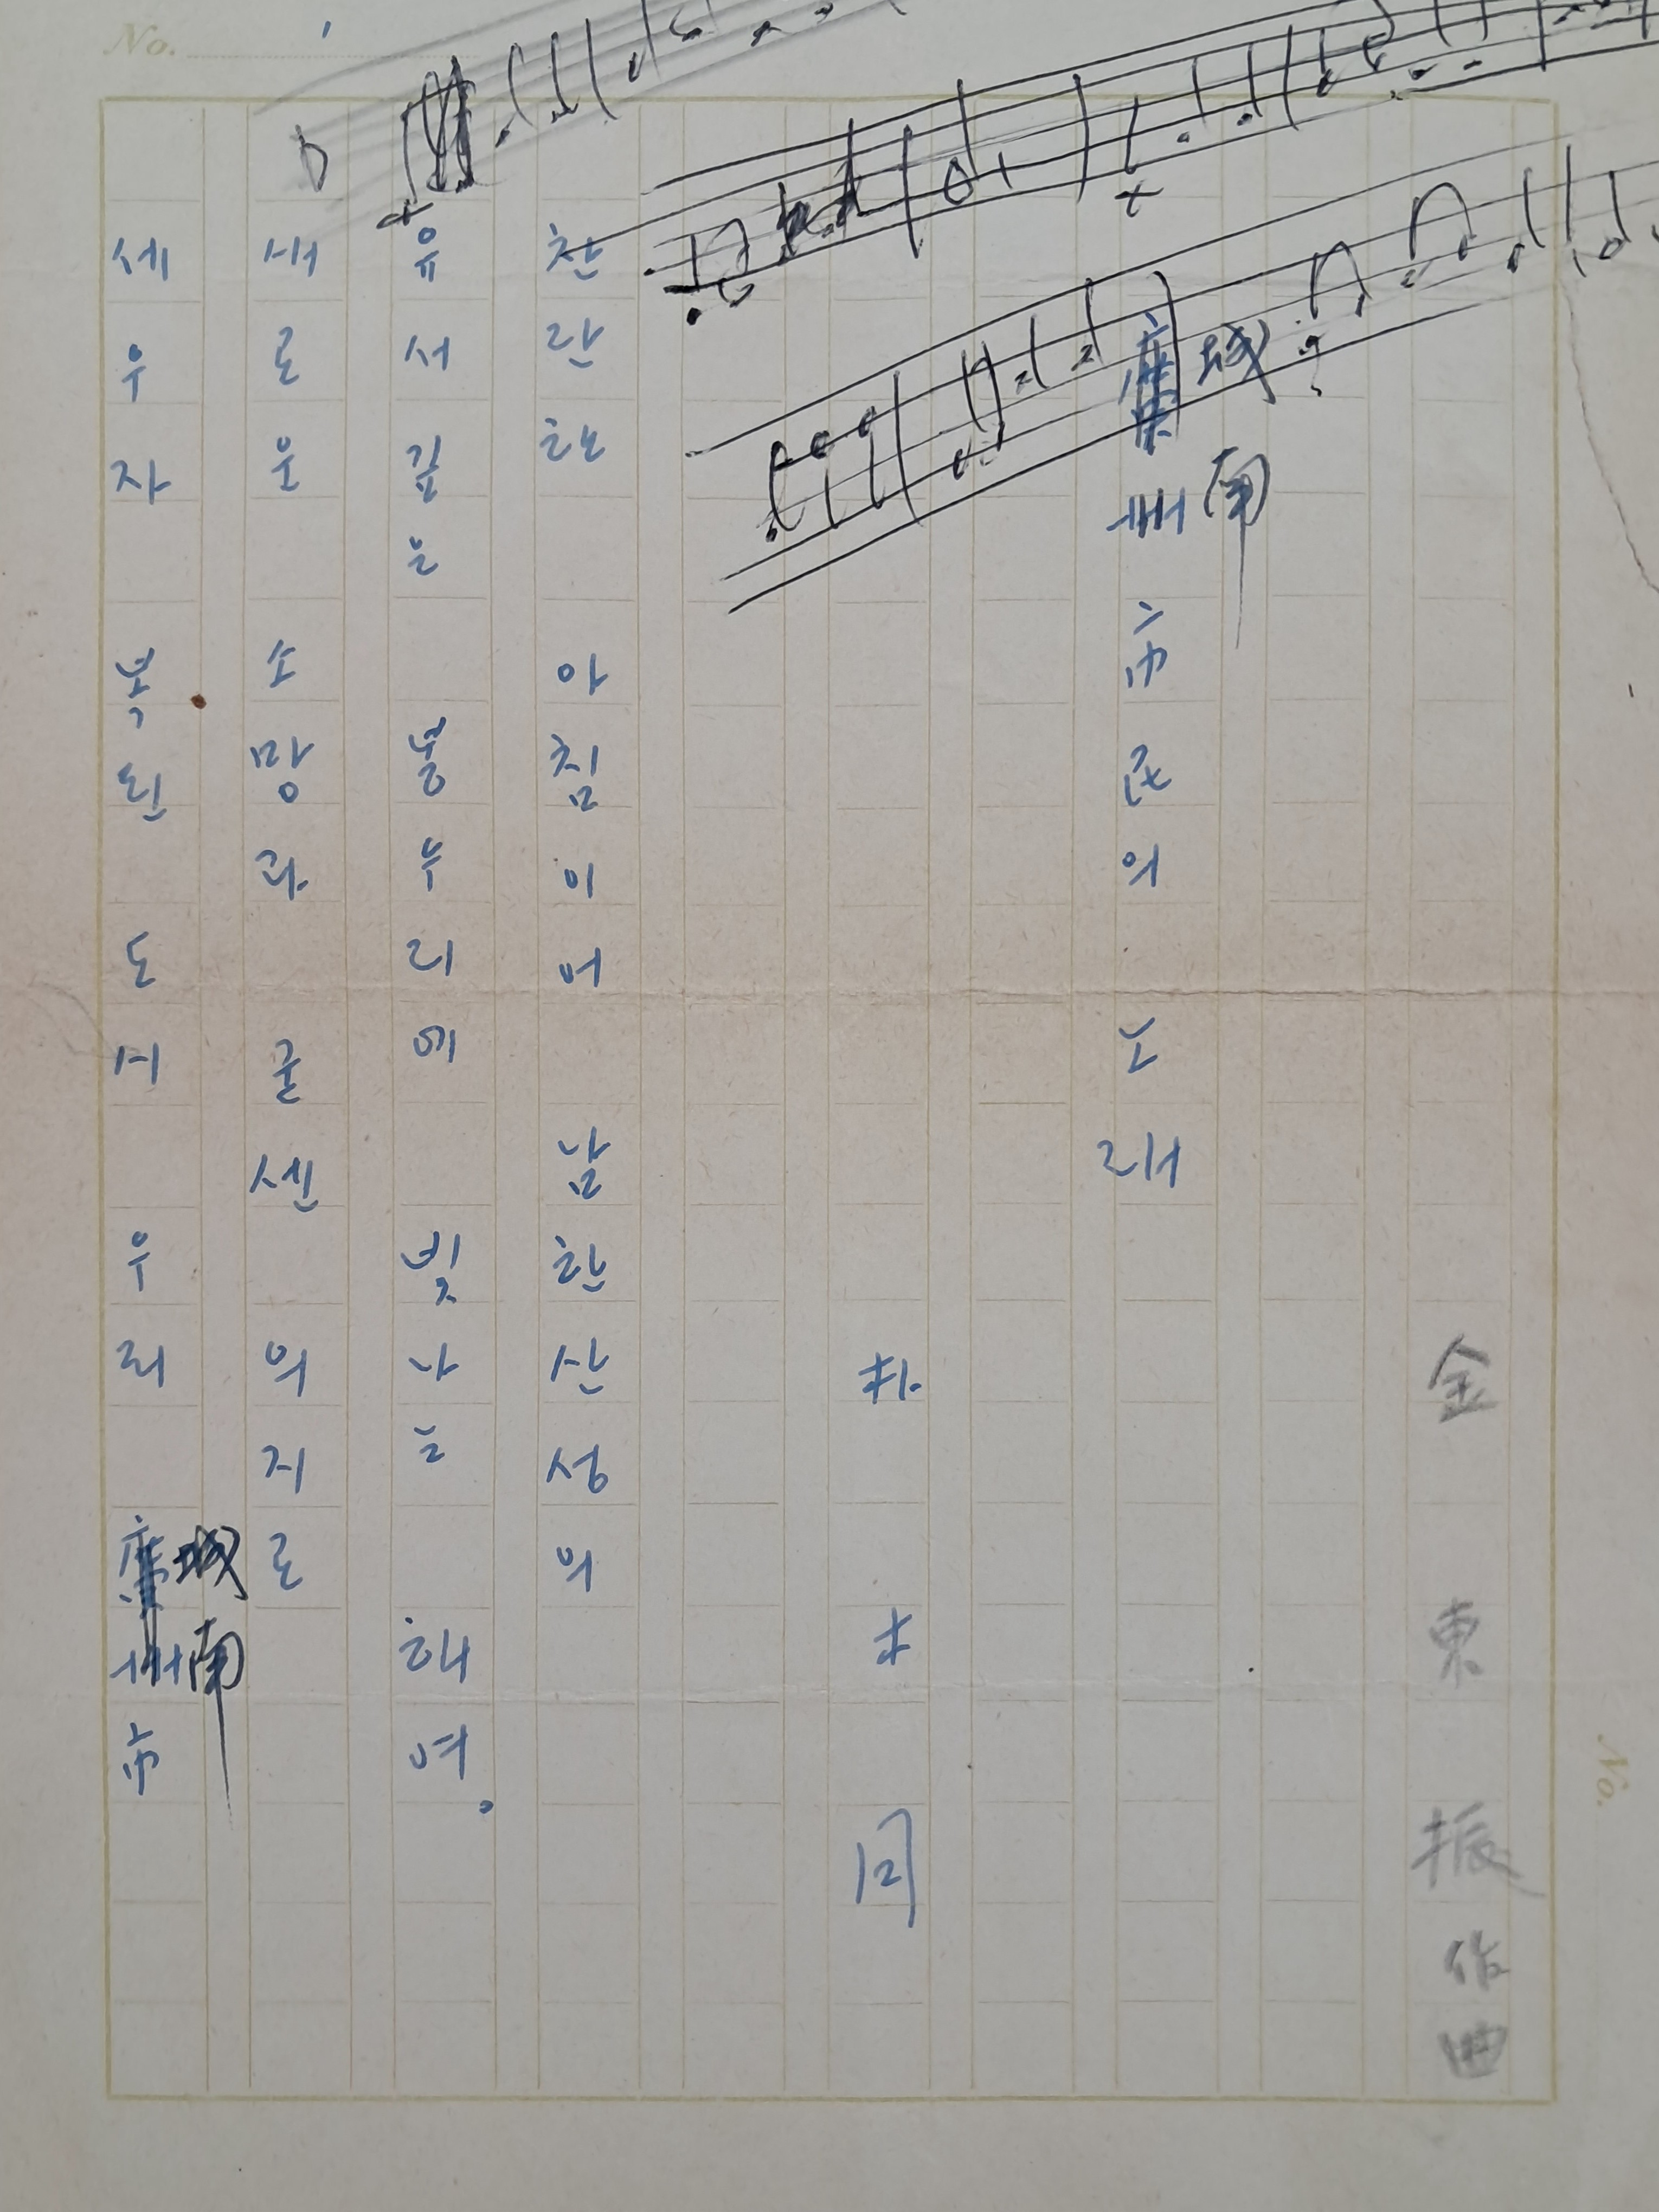 No.
金東振作曲
廣州 城南 市民의 노래
朴木月
찬란한 아침이어 남한산성의
유서깊은 봉우리에 빛나는 해여.
새로운 소망과 굳센 의지로
세우자 복된 도시 우리 廣州 城南 市
No.